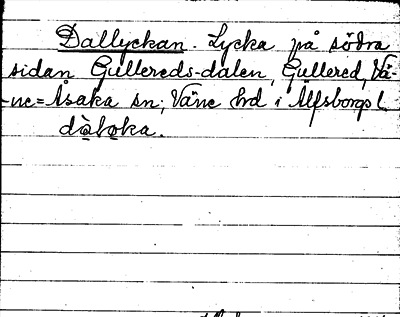 Dallyckan. Lycka på södra
sidan Gullereds-dalen, Gullered, Vä-
ne=Åsaka sn; Väne hd i Älfsborgs l.